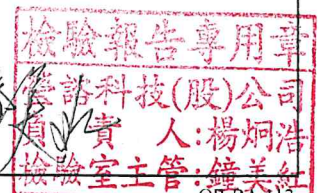 檢驗報告專用章
誉諮科技(股)公司
負責人:楊炯浩
檢驗室主管:鐘美紅